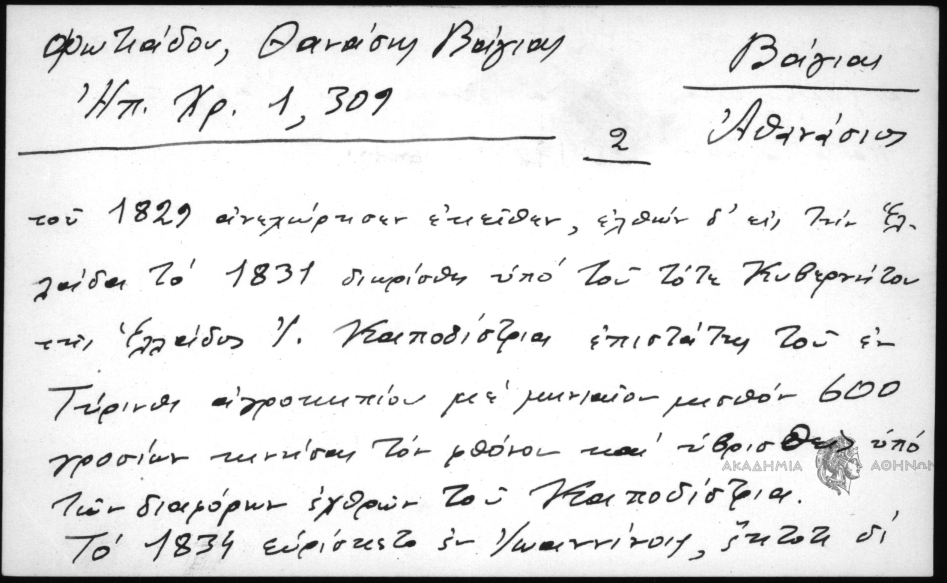 Φωτιάδου, Θανάσης Βάγιας
Ἠπ. Χρ. 1, 309
Βάγιας
Ἀθανάσιος
2
τοῦ 1829 ἀνεχώρησεν ἐκεῖθεν, ἐλθών δ' εἰς τήν Ἑλ-
λάδα τό 1831 διωρίσθη ὑπό τοῦ τότε Κυβερνήτου
τῆς Ἑλλάδος Ἰ. Καποδίστρια ἐπιστάτης τοῦ ἐν
Τύρινθι ἀγροκηπίου μέ μηνιαῖον μισθόν 600
γροσίων κινήσας τόν φθόνον καί ὑβρισθείς ὑπό
τῶν διαφόρων ἐχθρῶν τοῦ Καποδίστρια.
Τό 1834 εὑρίσκετο ἐν Ἰωαννίνοις, ἔκτοτε δέ
ΑΚΑΔΗΜΙΑ ΑΘΗΝΩΝ